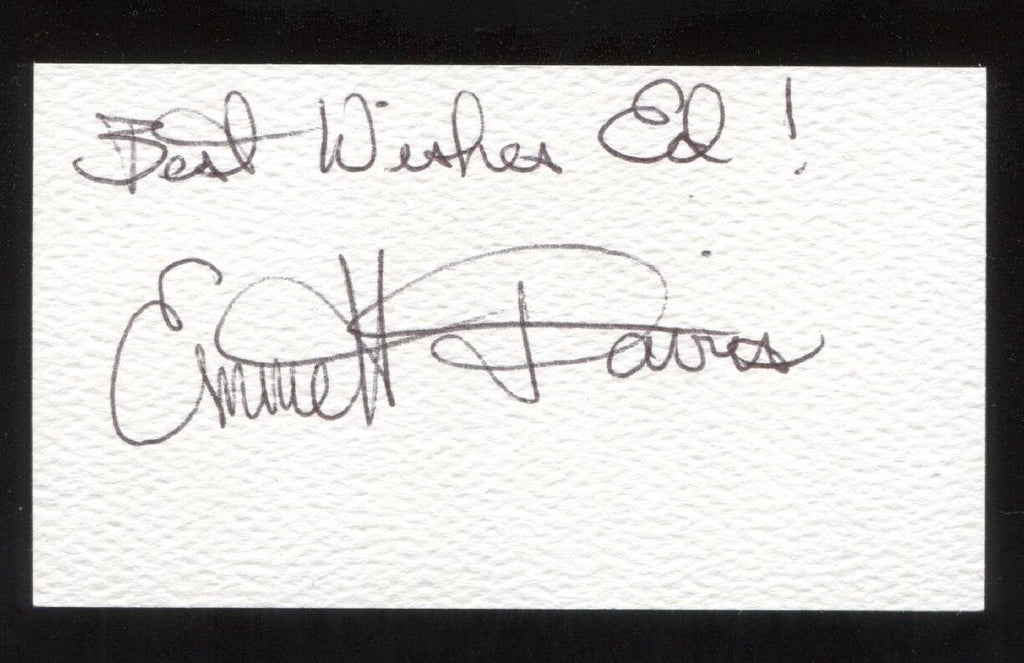 Best Wishes Ed!
Emmett Davis